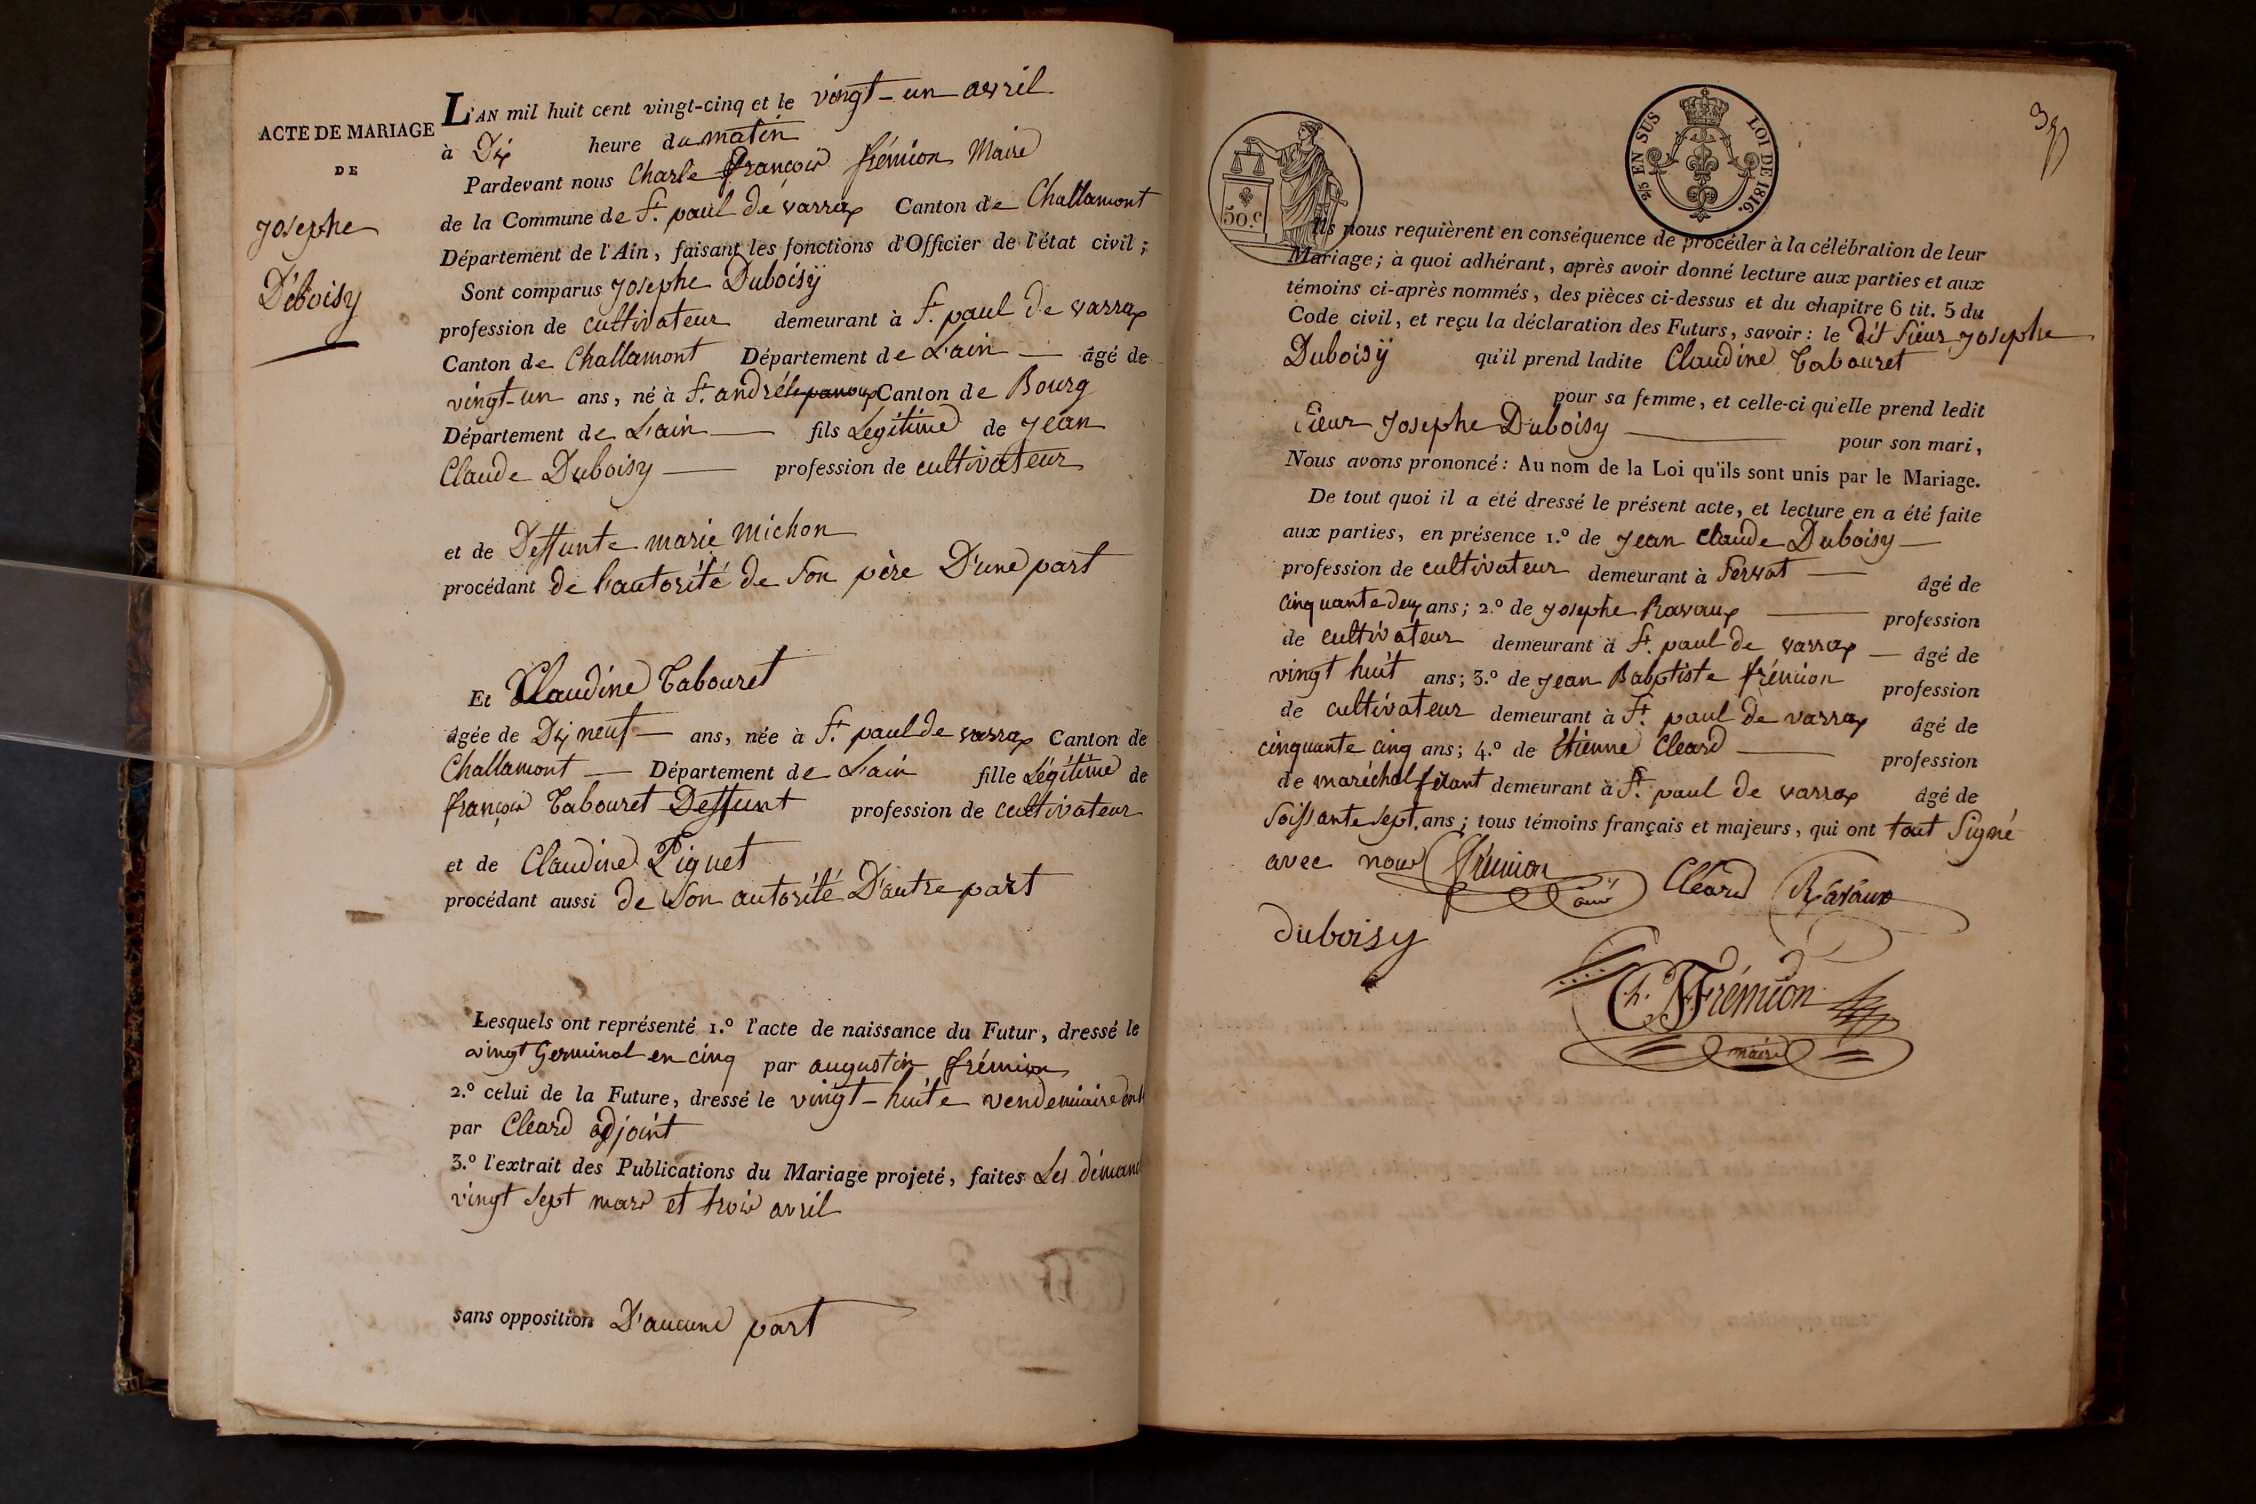 ACTE DE MARIAGE
DE
Josephe
Déboisy
L'AN mil huit cent vingt-cinq et le vingt-un avril
à Dix heure du matin
Pardevant nous Charle françois frémion Maire
de la Commune de St. paul de varrax Canton de Challamont
Département de l'Ain, faisant les fonctions d'Officier de l'état civil;
Sont comparus Josephe Duboisÿ
profession de cultivateur demeurant à St. paul de varrax
Canton de Challamont Département de L'ain âgé de
vingt-un ans, né à St. andré Canton de Bourg
Département de L'ain fils Légitime de Jean
Claude Duboisy profession de cultivateur
et de Deffunte marie michon
procédant de l'autorité de Son père D'une part
Et Claudine Tabouret
âgée de Dix neuf ans, née à St. paul de varrax Canton de
Challamont Département de L'ain fille Légitime de
françois Tabouret Deffunt profession de cultivateur
et de Claudine Piguet
procédant aussi de Son autorité D'autre part
Lesquels ont représenté 1.º l'acte de naissance du Futur, dressé le
vingt Germinal en cinq par augustin frémion
2.º celui de la Future, dressé le vingt-huite vendemiaire
par Cleard adjoint
3.º l'extrait des Publications du Mariage projeté, faites Les
vingt sept mars et trois avril
sans opposition D'aucune part
50.c
2/5 EN SUS LOI DE 1816.
Ils nous requièrent en conséquence de procéder à la célébration de leur
Mariage; à quoi adhérant, après avoir donné lecture aux parties et aux
témoins ci-après nommés, des pièces ci-dessus et du chapitre 6 tit. 5 du
Code civil, et reçu la déclaration des Futurs, savoir: le dit Sieur Josephe
Duboisÿ qu'il prend ladite Claudine Tabouret
pour sa femme, et celle-ci qu'elle prend ledit
Sieur Josephe Duboisy pour son mari,
Nous avons prononcé: Au nom de la Loi qu'ils sont unis par le Mariage.
De tout quoi il a été dressé le présent acte, et lecture en a été faite
aux parties, en présence 1.º de Jean Claude Duboisy
profession de cultivateur demeurant à Servat âgé de
cinquante deux ans; 2.º de Josephe Ravaux profession
de cultivateur demeurant à St. paul de varrax âgé de
vingt huit ans; 3.º de Jean Baptiste frémion profession
de cultivateur demeurant à St. paul de varrax âgé de
cinquante cinq ans; 4.º de Etienne Cleard profession
de maréchal férant demeurant à St. paul de varrax âgé de
Soissante sept ans; tous témoins français et majeurs, qui ont tout Signé
avec nous frémion Cléard Ravaux
duboisy
Ch. F Frémion
maire